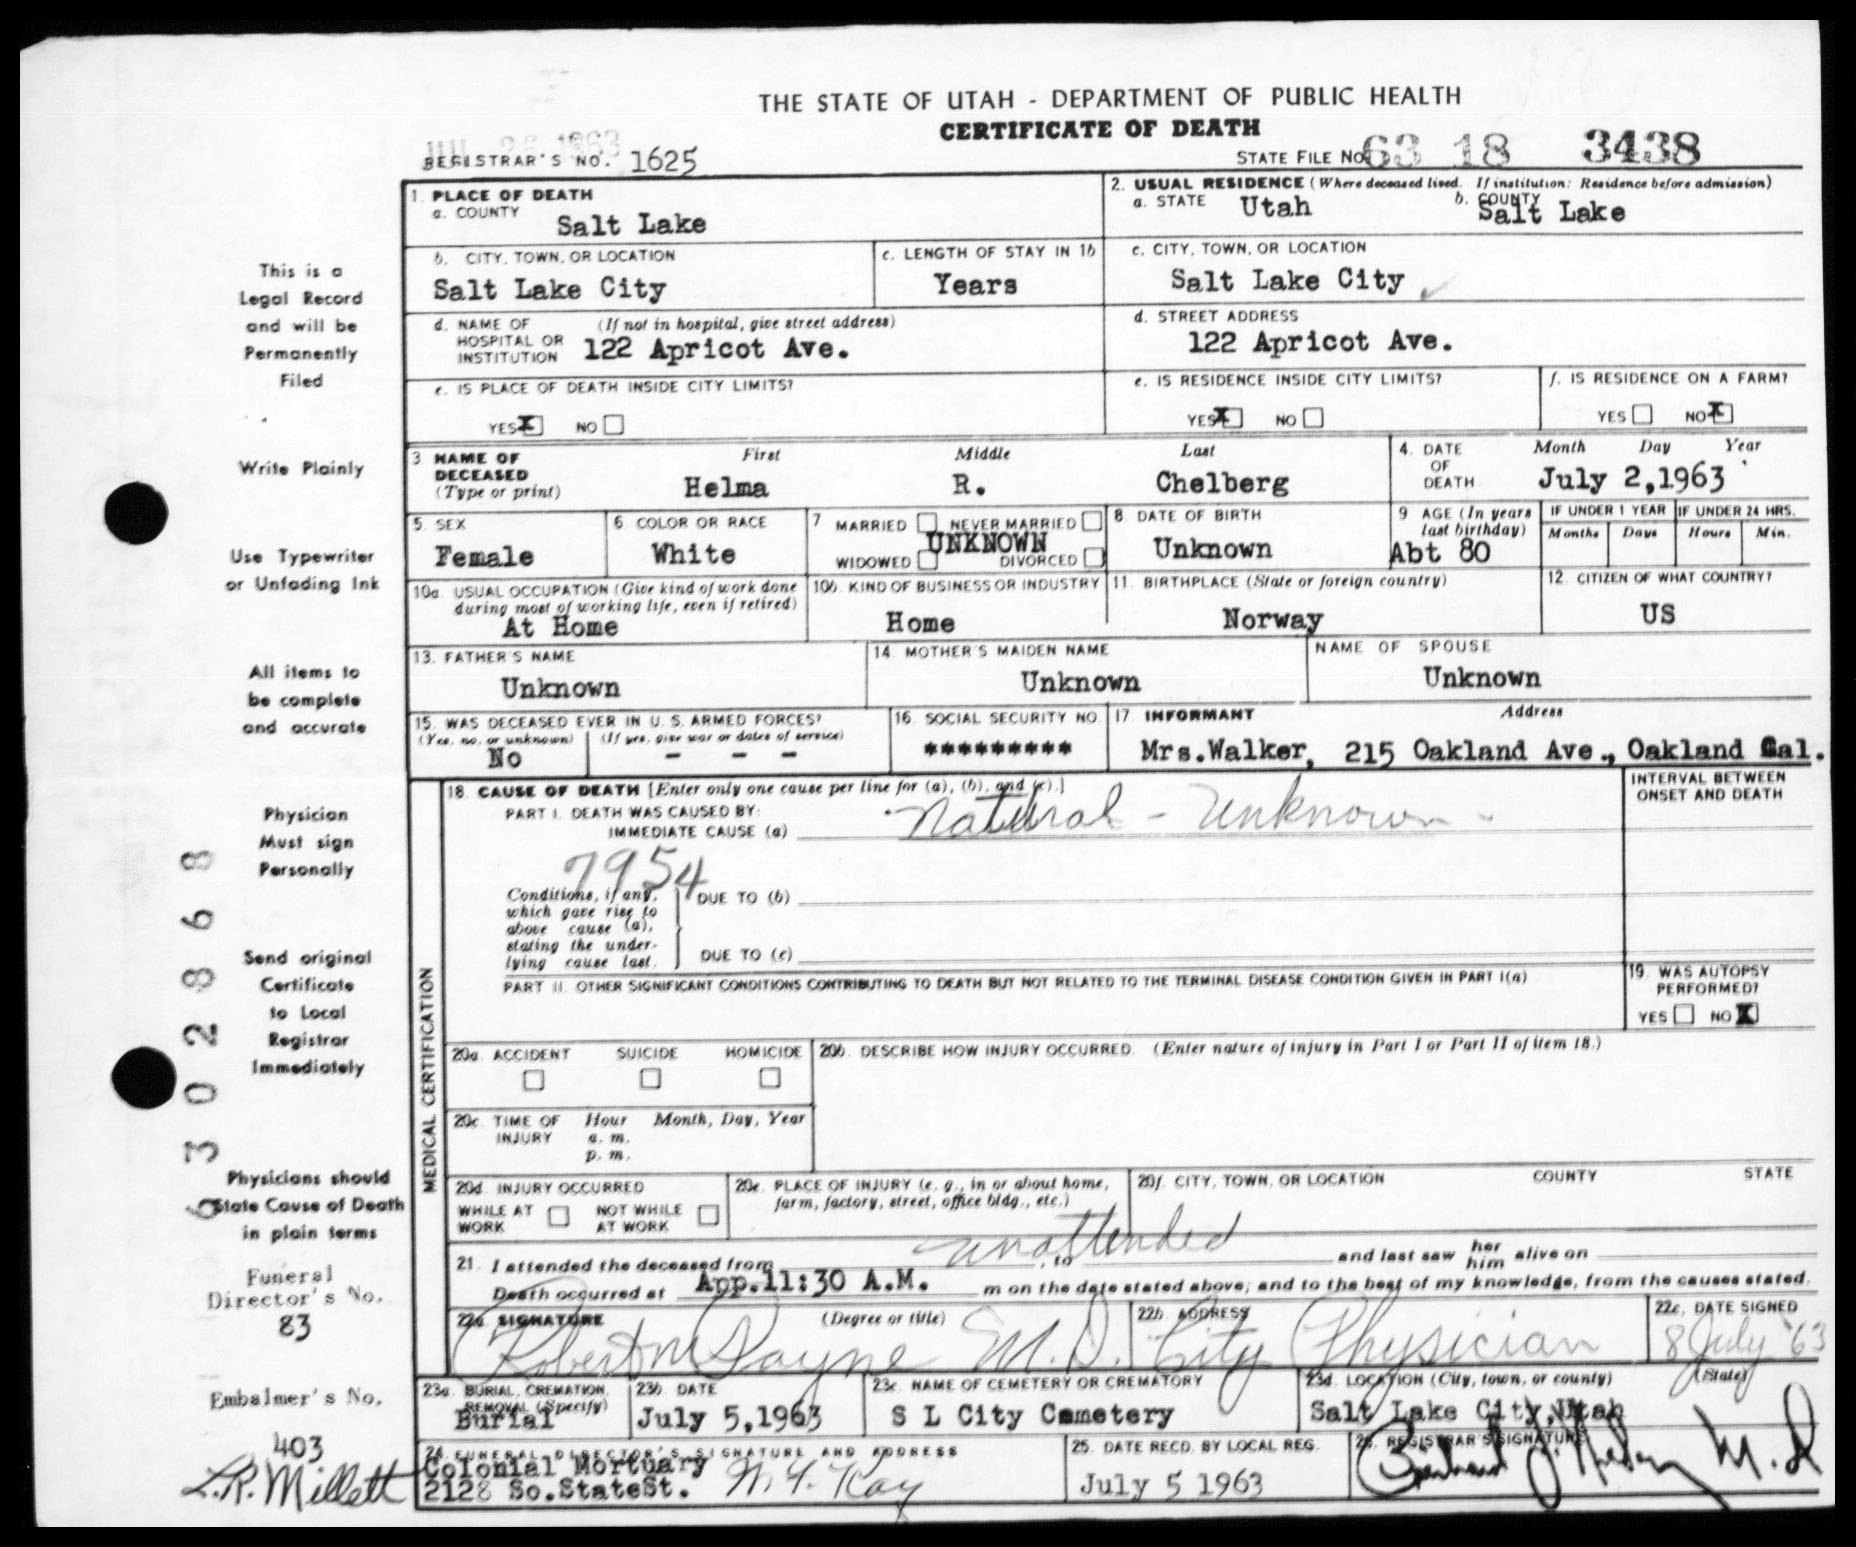 THE STATE OF UTAH - DEPARTMENT OF PUBLIC HEALTH
CERTIFICATE OF DEATH
JUL 26 1963
REGISTRAR'S NO. 1625
STATE FILE NO. 63 18 3438
This is a
Legal Record
and will be
Permanently
Filed
Write Plainly
Use Typewriter
or Unfading Ink
All items to
be complete
and accurate
Physician
Must sign
Personally
Send original
Certificate
to Local
Registrar
Immediately
Physicians should
State Cause of Death
in plain terms
Funeral
Director's No.
83
Embalmer's No.
403
L.R. Millett
63028698
1. PLACE OF DEATH
a. COUNTY Salt Lake
2. USUAL RESIDENCE (Where deceased lived. If institution: Residence before admission)
a. STATE Utah b. COUNTY Salt Lake
b. CITY, TOWN, OR LOCATION Salt Lake City
c. LENGTH OF STAY IN 1b Years
c. CITY, TOWN, OR LOCATION Salt Lake City
d. NAME OF HOSPITAL OR INSTITUTION (If not in hospital, give street address) 122 Apricot Ave.
d. STREET ADDRESS 122 Apricot Ave.
e. IS PLACE OF DEATH INSIDE CITY LIMITS?
YES X NO
e. IS RESIDENCE INSIDE CITY LIMITS?
YES X NO
f. IS RESIDENCE ON A FARM?
YES NO X
3 NAME OF DECEASED (Type or print)
First Middle Last
Helma R. Chelberg
4. DATE OF DEATH Month Day Year
July 2,1963
5. SEX Female
6. COLOR OR RACE White
7 MARRIED NEVER MARRIED
UNKNOWN
WIDOWED DIVORCED
8. DATE OF BIRTH Unknown
9 AGE (In years last birthday) Abt 80
IF UNDER 1 YEAR Months Days
IF UNDER 24 HRS. Hours Min.
10a. USUAL OCCUPATION (Give kind of work done during most of working life, even if retired)
At Home
10b. KIND OF BUSINESS OR INDUSTRY
Home
11. BIRTHPLACE (State or foreign country)
Norway
12. CITIZEN OF WHAT COUNTRY?
US
13. FATHER'S NAME
Unknown
14. MOTHER'S MAIDEN NAME
Unknown
NAME OF SPOUSE
Unknown
15. WAS DECEASED EVER IN U. S. ARMED FORCES?
(Yes, no, or unknown) (If yes, give war or dates of service)
No - - -
16. SOCIAL SECURITY NO.
*********
17. INFORMANT Address
Mrs.Walker, 215 Oakland Ave., Oakland Cal.
MEDICAL CERTIFICATION
18. CAUSE OF DEATH [Enter only one cause per line for (a), (b), and (c).]
PART I. DEATH WAS CAUSED BY:
IMMEDIATE CAUSE (a) Natural - Unknown -
INTERVAL BETWEEN ONSET AND DEATH
7954
Conditions, if any, which gave rise to above cause (a), stating the underlying cause last.
DUE TO (b)
DUE TO (c)
PART II. OTHER SIGNIFICANT CONDITIONS CONTRIBUTING TO DEATH BUT NOT RELATED TO THE TERMINAL DISEASE CONDITION GIVEN IN PART I(a)
19. WAS AUTOPSY PERFORMED?
YES NO X
20a. ACCIDENT SUICIDE HOMICIDE
20b. DESCRIBE HOW INJURY OCCURRED. (Enter nature of injury in Part I or Part II of item 18.)
20c. TIME OF INJURY Hour Month, Day, Year
a. m.
p. m.
20d. INJURY OCCURRED
WHILE AT WORK NOT WHILE AT WORK
20e. PLACE OF INJURY (e. g., in or about home, farm, factory, street, office bldg., etc.)
20f. CITY, TOWN, OR LOCATION COUNTY STATE
21. I attended the deceased from unattended, to and last saw her him alive on
Death occurred at App.11:30 A.M. m on the date stated above; and to the best of my knowledge, from the causes stated.
22a. SIGNATURE (Degree or title)
Robert M Payne M.D.
22b. ADDRESS
City Physician
22c. DATE SIGNED
8 July '63
23a. BURIAL, CREMATION, REMOVAL (Specify)
Burial
23b. DATE
July 5,1963
23c. NAME OF CEMETERY OR CREMATORY
S L City Cemetery
23d. LOCATION (City, town, or county) (State)
Salt Lake City,Utah
24. FUNERAL DIRECTOR'S SIGNATURE AND ADDRESS
Colonial Mortuary
2128 So.StateSt.
25. DATE RECD. BY LOCAL REG.
July 5 1963
26. REGISTRAR'S SIGNATURE
M.D